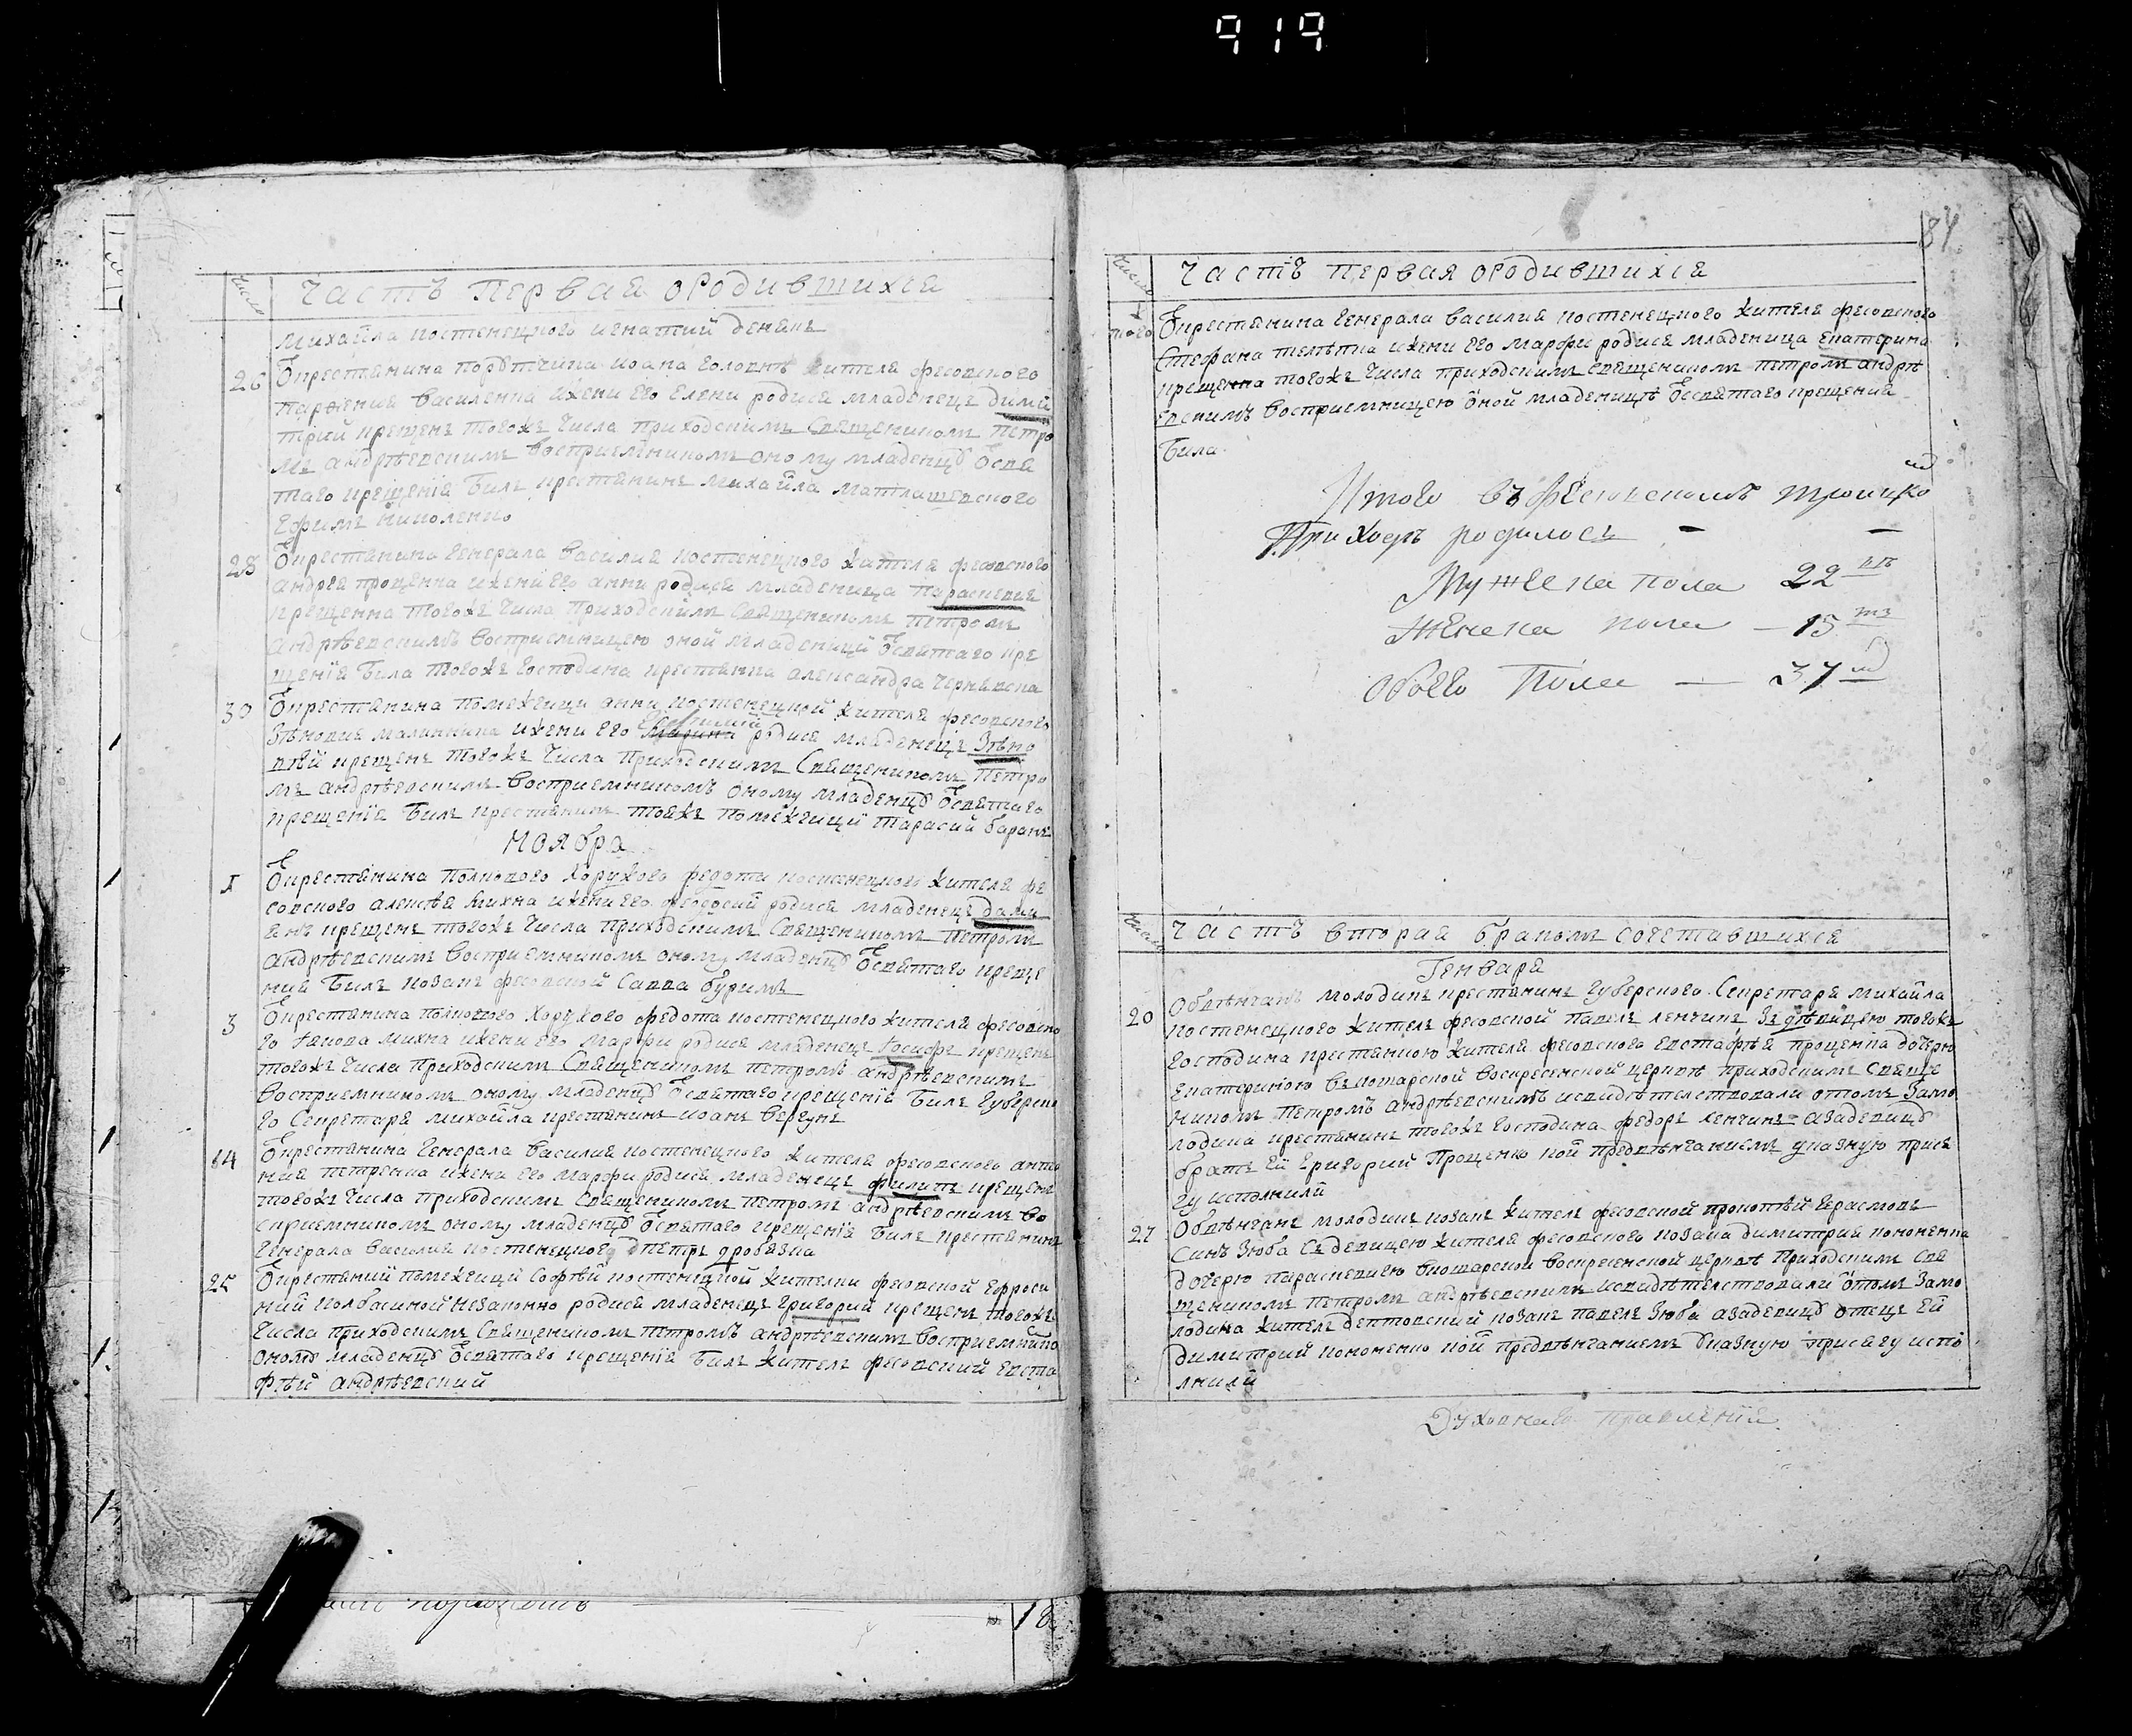 919
Число
Часть Первая о Родившихся
Михайла костенецкого игнатий деняк
26
Ꙋ крестянина порутчика иоана головнѣ жителя фесовского
парфения василенка ижени его елени родися младенец дими
трий крещен тогож числа приходским священиком петро
м андрѣевским восприемником оному младенцу ѿ святаго
крещенія бил крестянин михайла матяшевского
ефим николенко
28
Ꙋ крестянина генерала василия костенецкого жителя фесовского
андрея проценка ижени его анни родися младеница параскевия
крещенна тогож числа приходским священиком петром
андрѣевским восприемницею оной младеници ѿ святаго кре
щенія била тогож господина крестянка александра чернявска
30
Ꙋ крестянина помежчици анни костенецкой жителя фесовского
зѣновия малинника ижени его родися младенец зѣно
вій крещен тогож числа приходским священиком петро
м андрѣевским восприемником оному младенцу ѿ святаго
крещенія бил крестянин тояж помежчици тарасий баран
Ноября
1
Ꙋ крестянина полкового хорунжого федота костенецкого жителя фе
совского алексѣя михна ижени его феодосий родися младенец дами
ян крещен тогож числа приходским священиком петром
андрѣевским восприемником оному младенцу ѿ святаго креще
ния бил козак фесовской савва бурим
3
Ꙋ крестянина полкового хорунжого федота костенецкого жителя фесовско
го іакова михна ижени его марфи родися младенец іосиф крещен
тогож числа приходским священиком петром андрѣевским
восприемником оному младенцу ѿ святаго крещенія бил губерско
го секретаря михайла крестянин иоан вергун
14
Ꙋ крестянина генерала василия костенецкого жителя фесовского анто
ния петренка ижени его марфи родися младенец филип крещен
тогож числа приходским священиком петром андрѣевским во
сприемником оному младенцу ѿ святаго крещенія бил крестянин
генерала василия костенецкого петр дробязка
25
Ꙋ крестяний помежчици софѣй костенецкой жителки фесовской ефроси
ний колбасиной незаконно родися младенец григорий крещен тогож
числа приходским священиком петром андрѣевским восприемнико
оному младенцу ѿ святаго крещенія бил жител фесовский евста
фѣй андрѣевский
18
84
Число
Часть первая о Родившихся
того
Ꙋ крестянина генерала василия костенецкого жителя фесовского
стефана телѣпна ижени его марфи родися младеница екатерина
крещенна тогож числа приходским священиком петром андрѣ
евским восприемницею оной младеницѣ ѿ святаго крещения
била
Итого въ фесовском троицко
Приходѣ родилось - -
Мужеска пола 22
Женска пола - 15
Обоего Пола — 37
Число
Часть вторая браком сочетавшихся
Генваря
20
Обвѣнчан молодик крестянин губерского секретаря михайла
костенецкого жител фесовской павел ленчик з дѣвицею тогож
господина крестянкою жителя фесовского евстафѣя проценка дочерю
екатериною в пошарской воскресенской церквѣ приходским свяще
ником петром андрѣевским исвидѣтелствовали о том замо
лодика крестянин тогож господина федор ленчик азадевицу
брат ей григорий проценко кои предвѣнчанием указную прися
гу исполнили
27
Обвѣнчан молодик козак жител фесовской прокопѣй герасимов
син зюба с девицею жителя фесовского козака димитрия кононенка
дочерю параскевиею в пошарской воскресенской церквѣ приходским свя
щеником петром андрѣевским исвидѣтелствовали о том замо
лодика жител дептовский козак павел зюба азадевицу отец ей
димитрий кононенко кои предвѣнчанием указную присягу испо
лнили
Духовнаго правленія